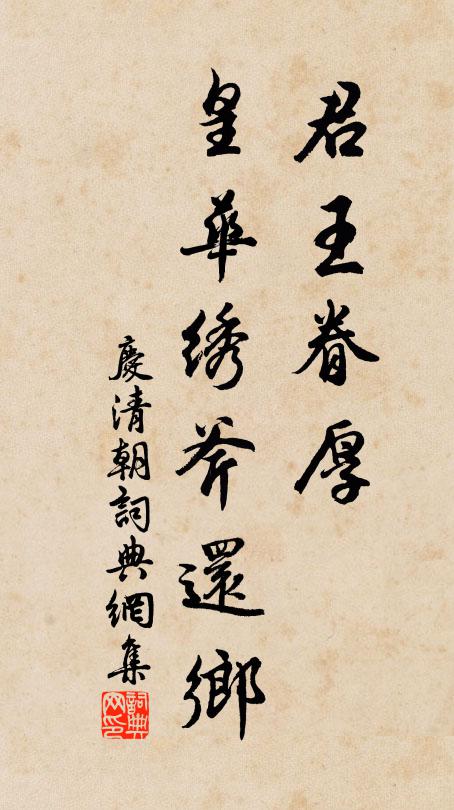 君王眷厚
皇華綉斧還鄉
慶清朝詞典網集
詞典网印